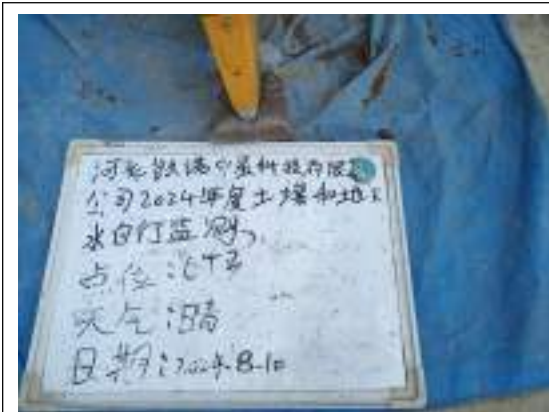 河北
科技有限
公司2024年度土壤和地下
水自行监测
点位:
天气:晴
日期:2024.8.10